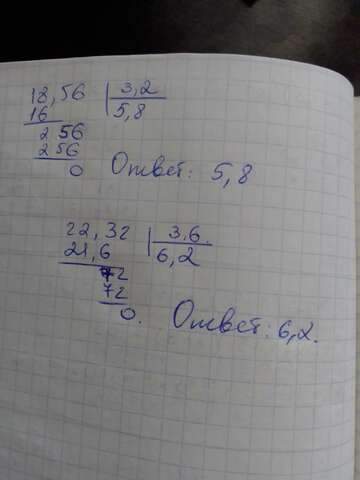 18,56 3,2
16 5,8
2 56
2 56
0 Ответ: 5,8
22,32 3,6.
21,6 6,2
72
72
0. Ответ: 6,2.